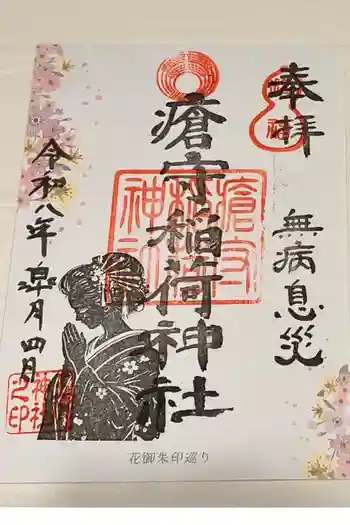 奉拝
無病息災
瘡守稲荷神社
令和八年皐月四日
瘡守稲荷神社
神社之印
花御朱印巡り